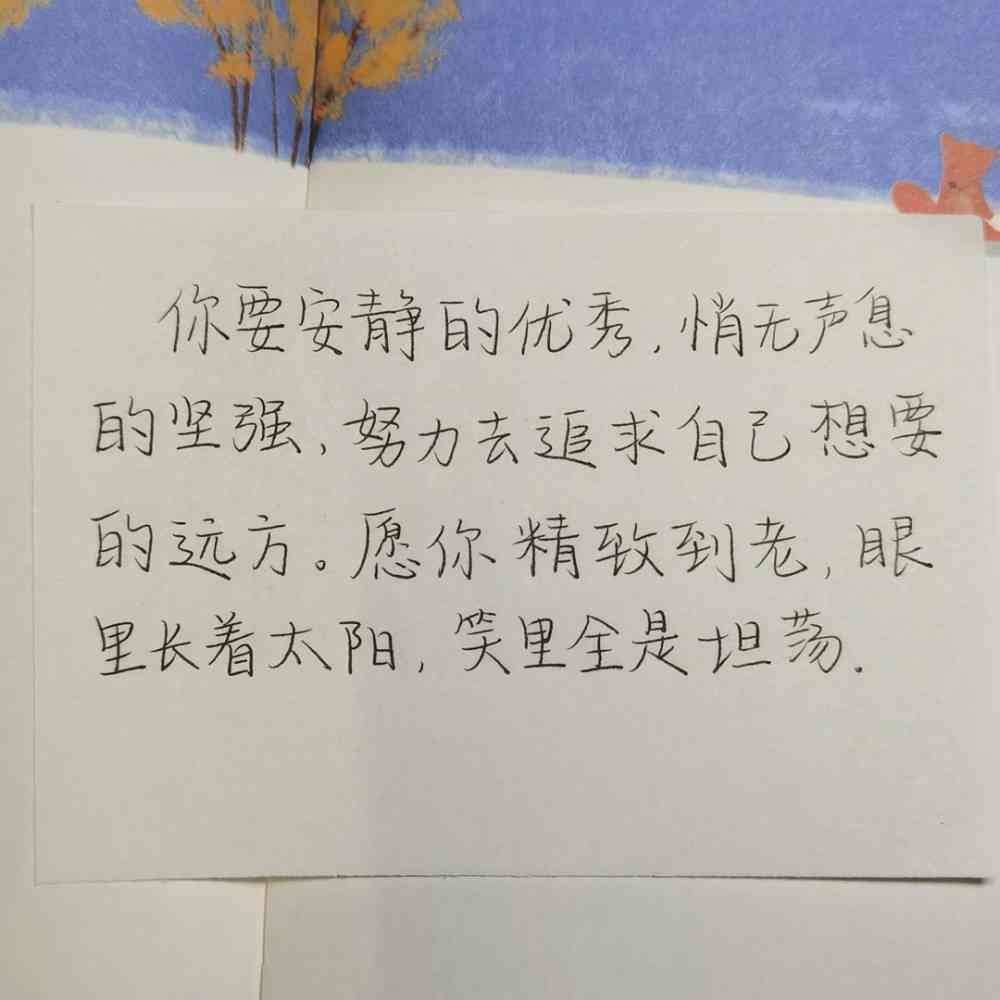 你要安静的优秀,悄无声息
的坚强,努力去追求自己想要
的远方。愿你精致到老,眼
里长着太阳,笑里全是坦荡.